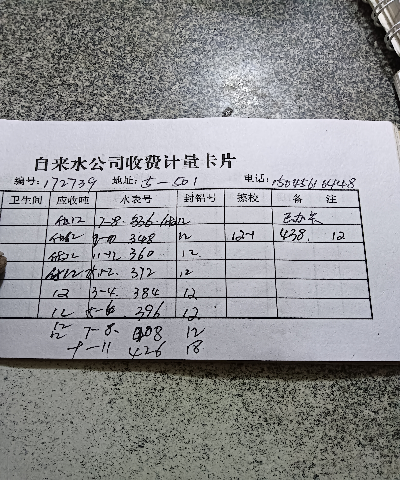 自来水公司收费计量卡片
编号:172739 地址:5-501 电话:
卫生间 应收吨 水表号 封铅号 校 备 注
12 7-8 336 12
12 348 12 12-1 438. 12
12 11-12 360 12
12 372 12
12 3-4. 384 12
12 5-6 396 12
12 7-8. 408 12
十-11 426 18